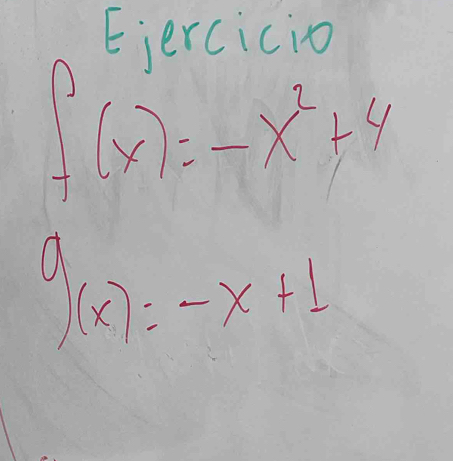 Ejercicio
f(x)=-x²+4
g(x)=-x+1